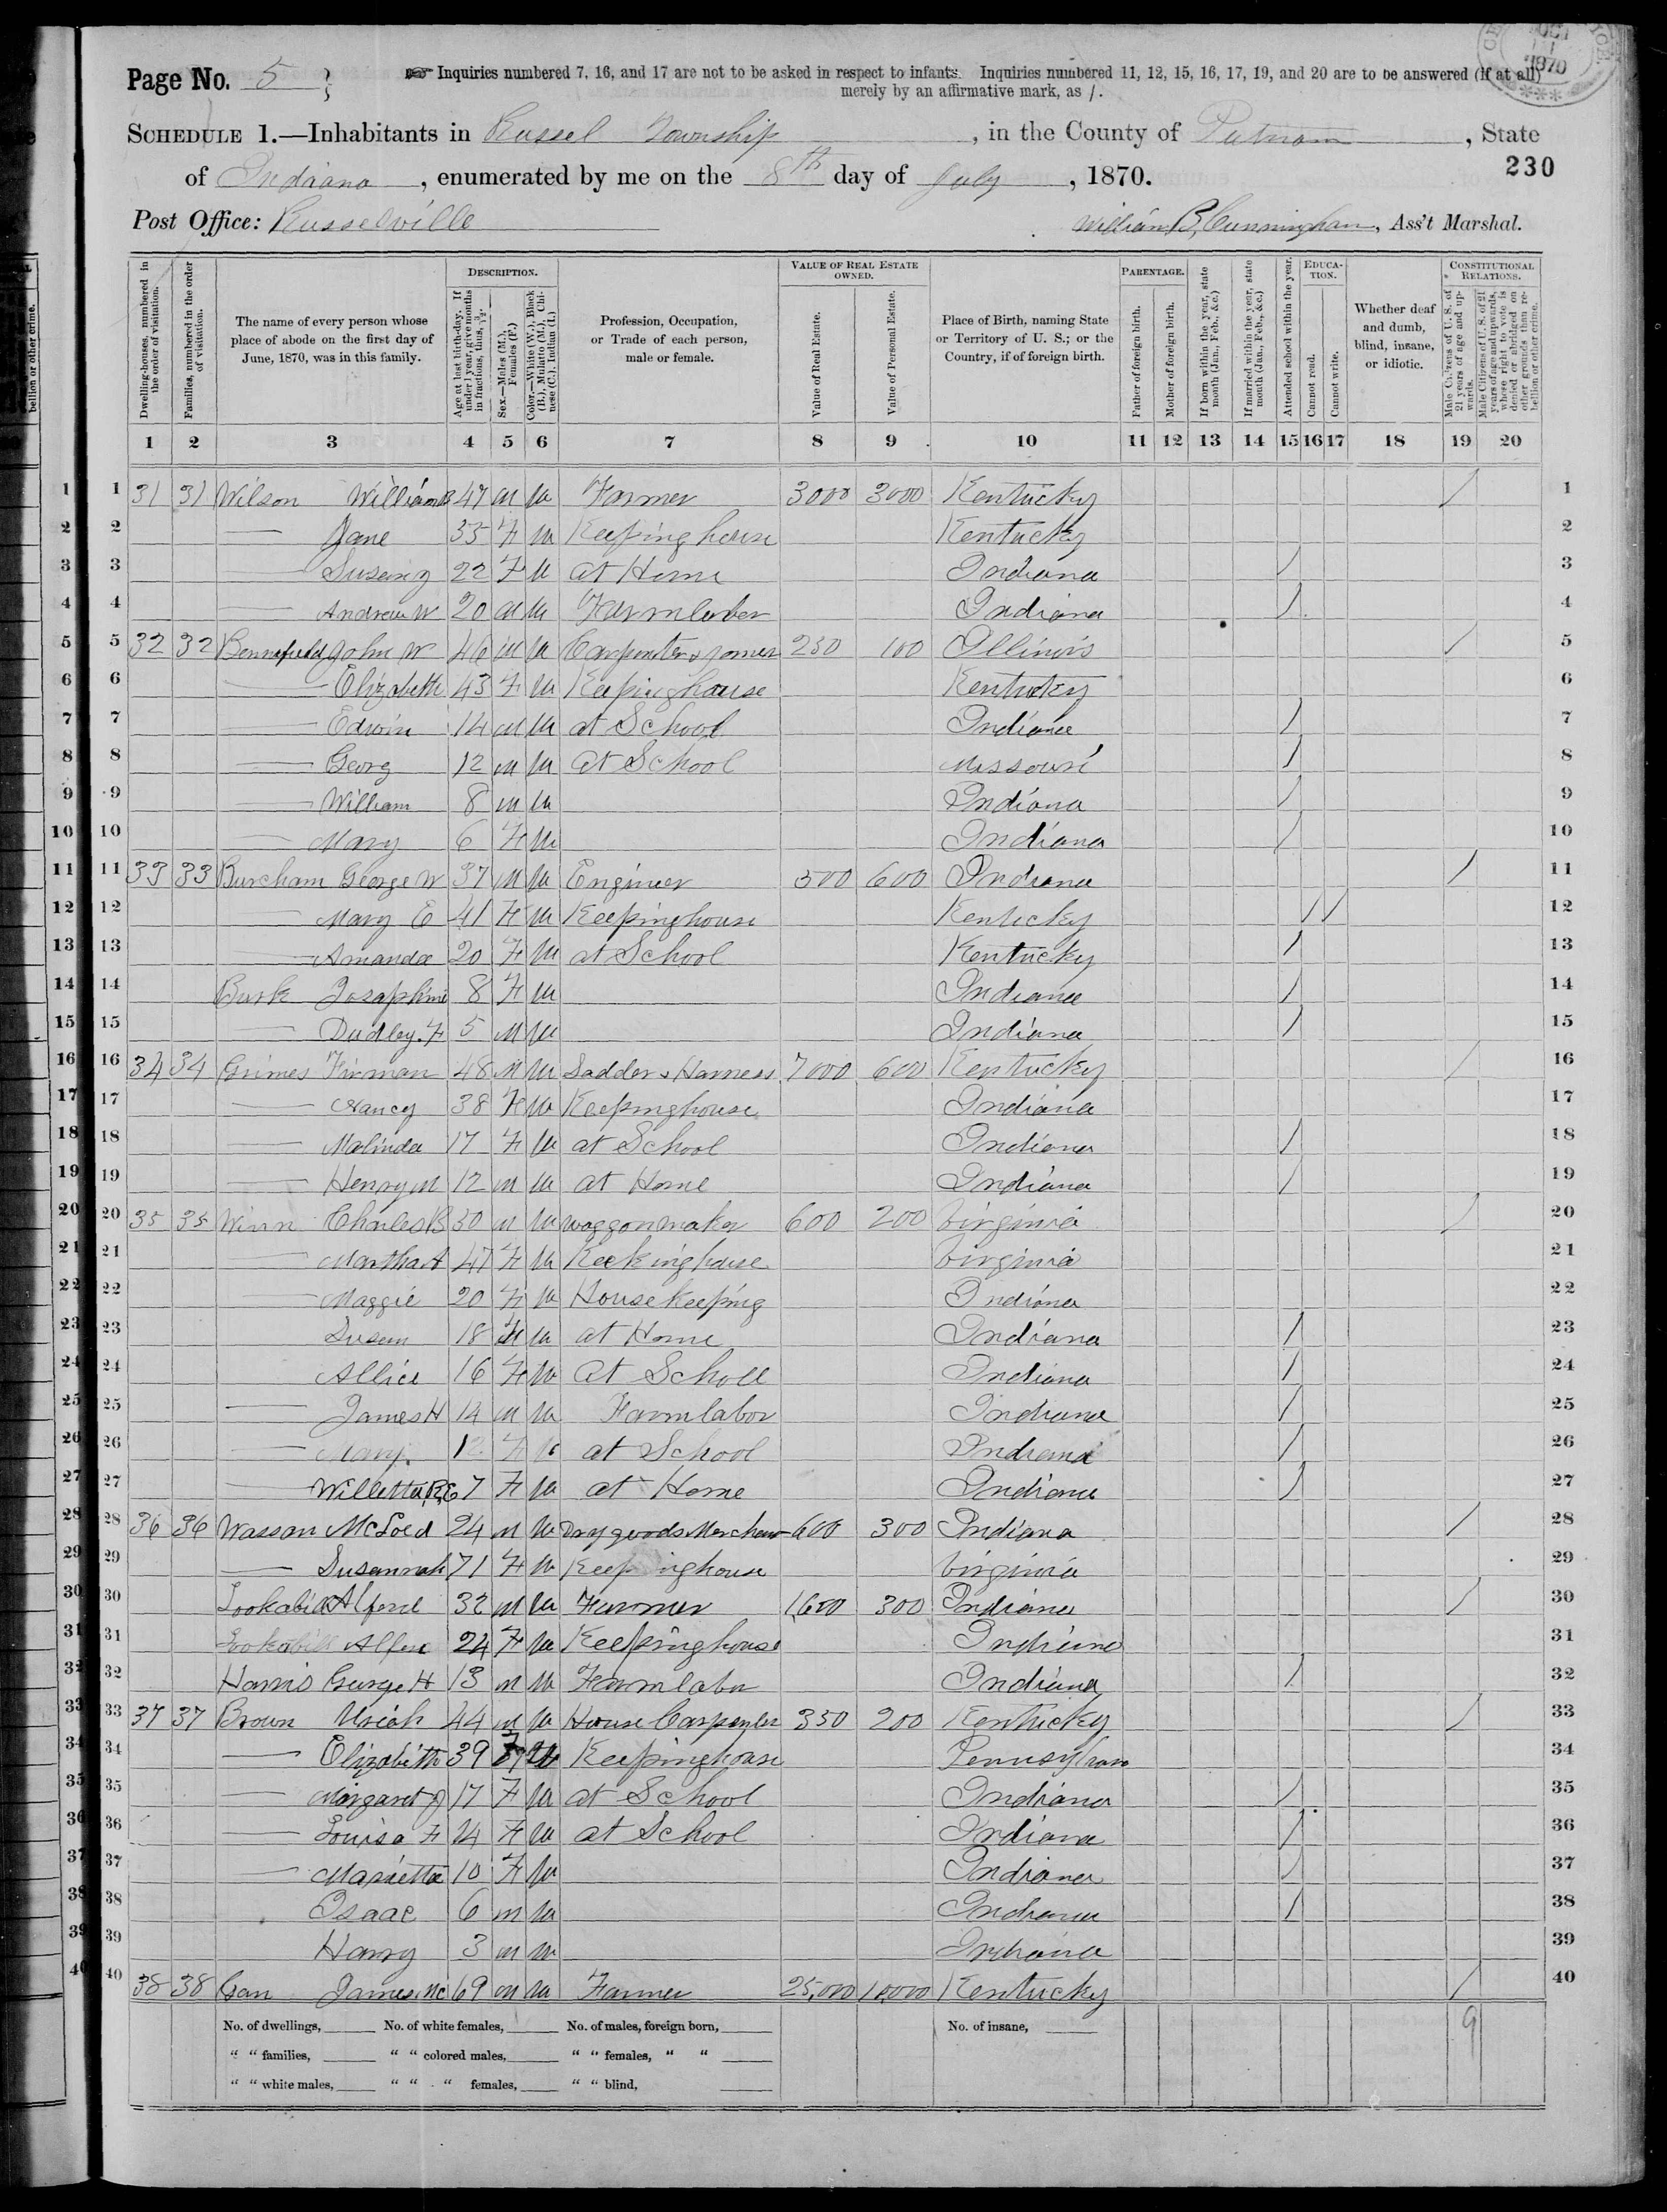 Page No. 5
☞ Inquiries numbered 7, 16, and 17 are not to be asked in respect to infants. Inquiries numbered 11, 12, 15, 16, 17, 19, and 20 are to be answered (if at all)
merely by an affirmative mark, as /.
OCT 11 1870
SCHEDULE 1.—Inhabitants in Russel Township, in the County of Putnam, State
230
of Indiana, enumerated by me on the 8th day of July, 1870.
Post Office: Russelville William B. Cunningham, Ass't Marshal.
Dwelling-houses, numbered in the order of visitation.
Families, numbered in the order of visitation.
The name of every person whose place of abode on the first day of June, 1870, was in this family.
DESCRIPTION.
Age at last birth-day. If under 1 year, give months in fractions, thus, 3/12.
Sex.—Males (M.), Females (F.)
Color.—White (W.), Black (B.), Mulatto (M.), Chinese (C.), Indian (I.)
Profession, Occupation, or Trade of each person, male or female.
VALUE OF REAL ESTATE OWNED.
Value of Real Estate.
Value of Personal Estate.
Place of Birth, naming State or Territory of U. S.; or the Country, if of foreign birth.
PARENTAGE.
Father of foreign birth.
Mother of foreign birth.
If born within the year, state month (Jan., Feb., &c.)
If married within the year, state month (Jan., Feb., &c.)
Attended school within the year.
EDUCATION.
Cannot read.
Cannot write.
Whether deaf and dumb, blind, insane, or idiotic.
CONSTITUTIONAL RELATIONS.
Male Citizens of U. S. of 21 years of age and upwards.
Male Citizens of U. S. of 21 years of age and upwards, whose right to vote is denied or abridged on other grounds than rebellion or other crime.
1 2 3 4 5 6 7 8 9 10 11 12 13 14 15 16 17 18 19 20
1 31 31 Wilson William B 47 M W Farmer 3000 3000 Kentucky / 1
2 — Jane 35 F W Keeping house Kentucky 2
3 — 22 F W at Home Indiana / 3
4 — Andrew W 20 M W Farmlaber Indiana / 4
5 32 32 Bennefield John W 46 M W Carpenter & Joner 250 100 Illinois / 5
6 — Elizabeth 43 F W Keepinghouse Kentucky 6
7 — Edwin 14 M W at School Indiana / 7
8 — Georg 12 M W at School Missouri / 8
9 — William 8 M W Indiana / 9
10 — Mary 6 F W Indiana / 10
11 33 33 Burcham George W 37 M W Engineer 500 600 Indiana / 11
12 — Mary E 41 F W Keepinghouse Kentucky / / 12
13 — Amanda 20 F W at School Kentucky / 13
14 Burk Josaphine 8 F W Indiana / 14
15 — Dudley. F 5 M W Indiana / 15
16 34 34 Grimes Firman 48 M W Sadder & Harness 7000 600 Kentucky / 16
17 — Nancy 38 F W Keepinghouse Indiana 17
18 — Malinda 17 F W at School Indiana / 18
19 — Henry M 12 M W at Home Indiana / 19
20 35 35 Winn Charles B 50 M W waggonmaker 600 200 Virginia / 20
21 — Martha A 47 F W Keekinghouse Virginia 21
22 — Maggie 20 F W Housekeeping Indiana 22
23 — Susan 18 F W at Home Indiana / 23
24 — Allice 16 F W at Scholl Indiana / 24
25 — James H 14 M W Farmlabor Indiana / 25
26 — Mary. 12 F W at School Indiana / 26
27 — Willetta R,E 7 F W at Home Indiana / 27
28 36 36 Wasson McLoed 24 M W Drygoods Merchan 600 300 Indiana / 28
29 — Susannah 71 F W Keepinghouse Virginia 29
30 Lookabill Alferd 32 M W Farmer 1,600 300 Indiana / 30
31 Lookabill 24 F W Keepinghouse Indiana 31
32 Harris George H 13 M W Farmlabor Indiana / 32
33 37 37 Brown Uriah 44 M W House Carpenter 350 200 Kentucky / 33
34 — Elizabeth 39 F W Keepinghouse Pennsylvan 34
35 — Margaret J 17 F W at School Indiana / 35
36 — Louisa F 14 F W at School Indiana / 36
37 — Marietta 10 F W Indiana / 37
38 Isaac 6 M W Indiana / 38
39 Harry 3 M W Indiana 39
40 38 38 Gan James Mc 69 M W Farmer 25,000 10,000 Kentucky / 40
No. of dwellings, No. of white females, No. of males, foreign born, No. of insane, 9
" " families, " " colored males, " " females, " "
" " white males, " " " females, " " blind,